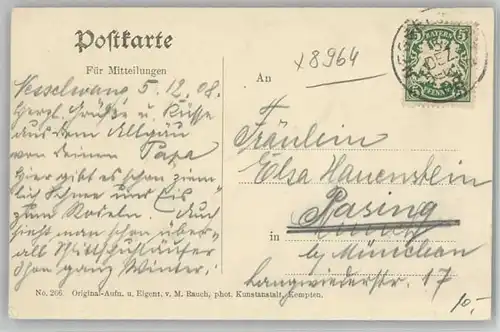 Postkarte
Für Mitteilungen
Nesselwang 5.12.08.
Herzl. Grüße u. Küsse
aus dem Allgäu
von Deinem Papa
hier gibt es schon ziem-
lich Schnee und Eis
zum Rodeln. Auch
sieht man schon über-
all Schlittschuhläufer
Schon ganz Winter.
An
x8964
BAYERN
5
PFENNIG
DEZ
Fräulein
Elsa Hauenstein
in Pasing
by München
Langwiederstr. 17
10.-
No. 266. Original-Aufn. u. Eigent. v. M. Rauch, phot. Kunstanstalt, Kempten.